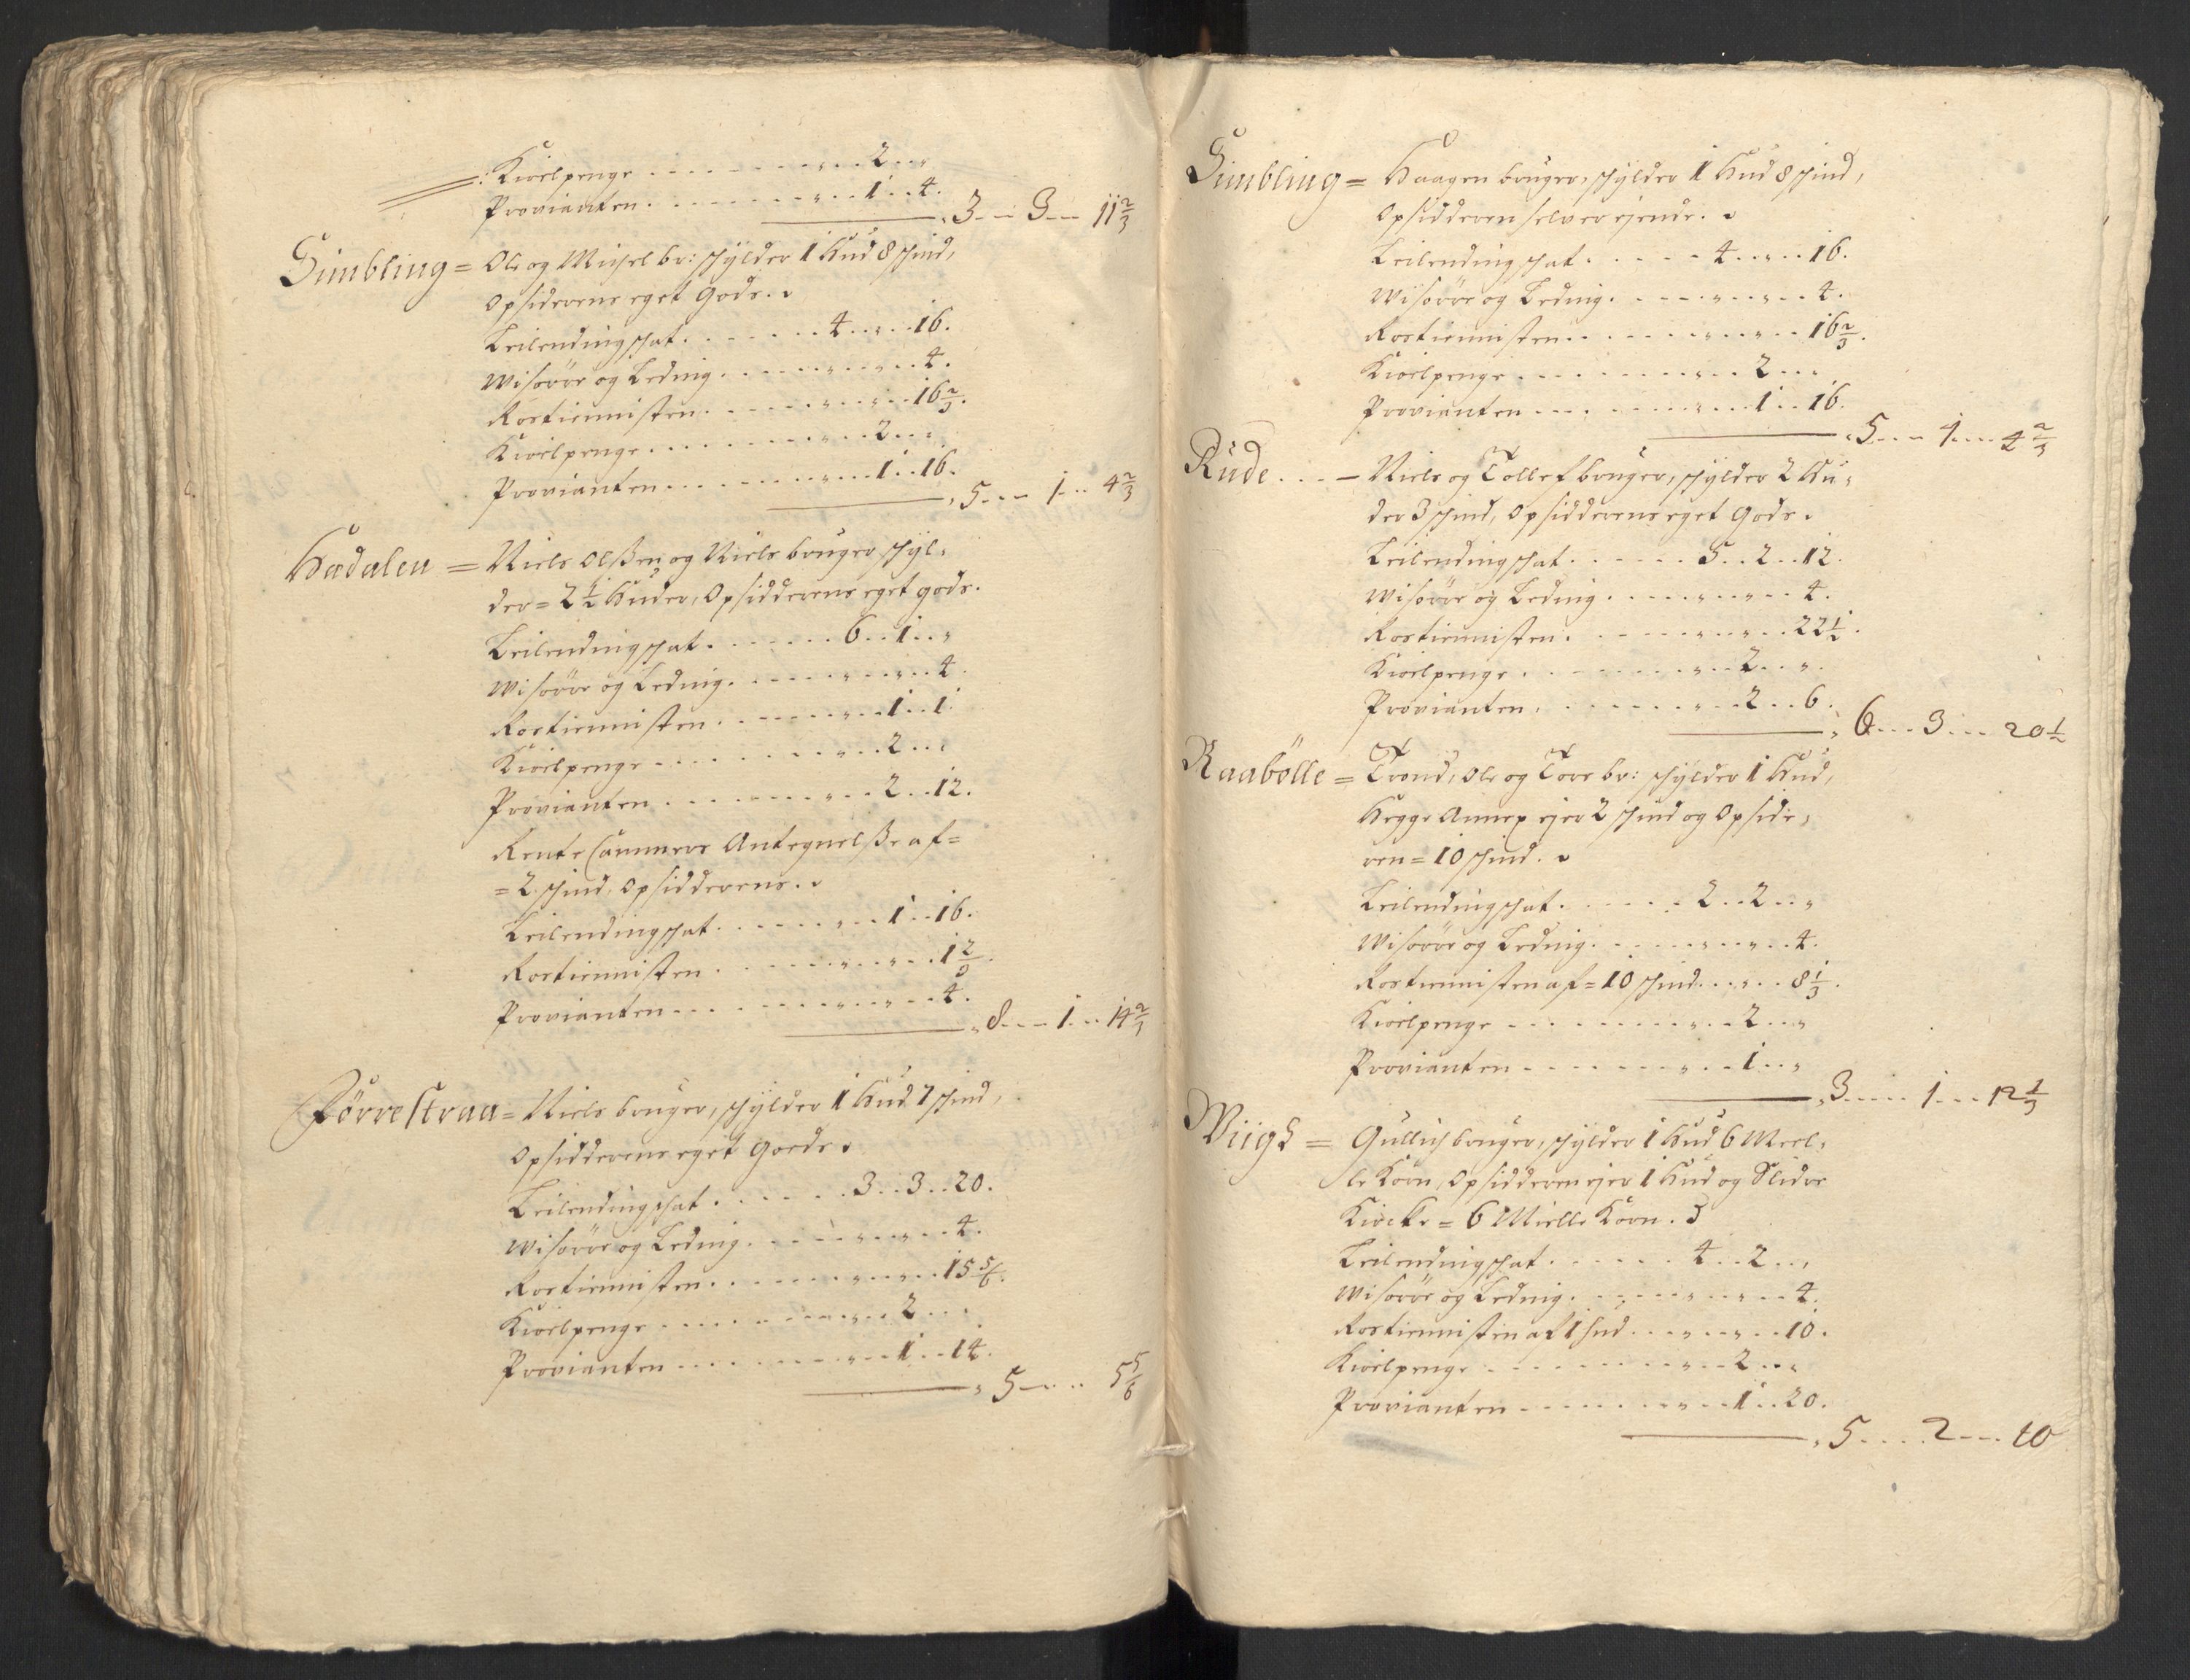 Kioelpenge . . . . . . . . . " . . 2 . . "
Provianten . . . . . . . . " . . 1 . . 4.
3 - - 3 - - 11 2/3
Simbling = Ole og Michel br: schylder 1 Hud 8 schind,
Opsiderens eget Gods.
Leilendingschat . . . . . . 4 . . " . . 16.
Wisøøre og Leding . . . . . " . . " . . 4.
Rostiennisten . . . . . " . . " . . 16 2/3.
Kioelpenge . . . . . . . . " . . 2 . . "
Provianten . . . . . . . . " . . 1 . . 16.
5 - - - 1 - - 4 2/3
Hædalen = Niels Olsßen og Niels bruger schyl-
der = 2 1/2 Huder, Opsidderens eget gods.
Leilendingschat . . . . . . 6 . . 1 . . "
Wisøøre og Leding . . . . . " . . " . . 4.
Rostienisten . . . . . . . " . . 1 . . 1.
Kioelpenge . . . . . . . . " . . 2 . . "
Provianten . . . . . . . . " . . 2 . . 12.
Rente Cammers Antegnelsße af =
= 2 schind, Opsidderens.
Leilendingschat . . . . . . " . . 1 . . 16.
Rostienisten . . . . . . " . . " . . 1 2/3.
Provianten . . . . . . . " . . " . . 4.
8 - - - 1 - - 14 2/3
Førrestraa = Niels bruger, schylder 1 Hud 7 schind,
Opsidderens eget Goeds
Leilendingschat . . . . . . 3 . . 3 . . 20.
Wisøøre og Leding . . . . . " . . " . . 4.
Rostienisten . . . . . . " . . " . . 15 5/6.
Kioelpenge . . . . . . . . " . . 2 . . "
Provianten . . . . . . . . " . . 1 . . 14.
5 - - - 5 5/6
Simbling = Haagen bruger, schylder 1 Hud 8 schind,
Opsidderen selver ejende.
Leilendingschat . . . . . . 4 . . " . . 16.
Wisøøre og Leding . . . . . " . . " . . 4.
Rostiennisten . . . . . . " . . " . . 16 2/3.
Kioelpenge . . . . . . . . " . . 2 . . "
Provianten . . . . . . . . " . . 1 . . 16.
5 - - - 1 - - - 4 2/3
Rude . . . - Niels og Tollef bruger, schylder 2 Hu-
der 3 schind, Opsidderens eget Gods.
Leilendingschat . . . . . . 5 . . 2 . . 12.
Wisøøre og Leding . . . . . " . . " . . 4.
Rostienisten . . . . . . " . . " . . 22 1/2.
Kioelpenge . . . . . . . . " . . 2 . . "
Provianten . . . . . . . . " . . 2 . . 6.
6 - - - 3 - - - 20 1/2
Raabølle = Trond, Ole og Tore br: schylder 1 Hud,
Hegge Annex ejer 2 schind og Opside-
ren = 10 schind.
Leilendingschat . . . . . . 2 . . 2 . . "
Wisøøre og Leding . . . . . " . . " . . 4.
Rostiennisten af = 10 schind . . " . . 8 1/3.
Kioelpenge . . . . . . . . " . . 2 . . "
Provianten . . . . . . . . " . . 1 . . "
3 - - - - 1 - - - 12 1/3
Wiigs = Gullich bruger, schylder 1 Hud 6 Meel-
le Korn, Opsidderen ejer 1 Hud og Slidre
Kircke = 6 Mielle Korn.
Leilendingschat . . . . . . 4 . . 2 . . "
Wisøøre og Leding . . . . . " . . " . . 4.
Rostiennisten af 1 hud . . . " . . " . . 10.
Kioelpenge . . . . . . . . " . . 2 . . "
Provianten . . . . . . . . " . . 1 . . 20.
5 - - - 2 - - - 10